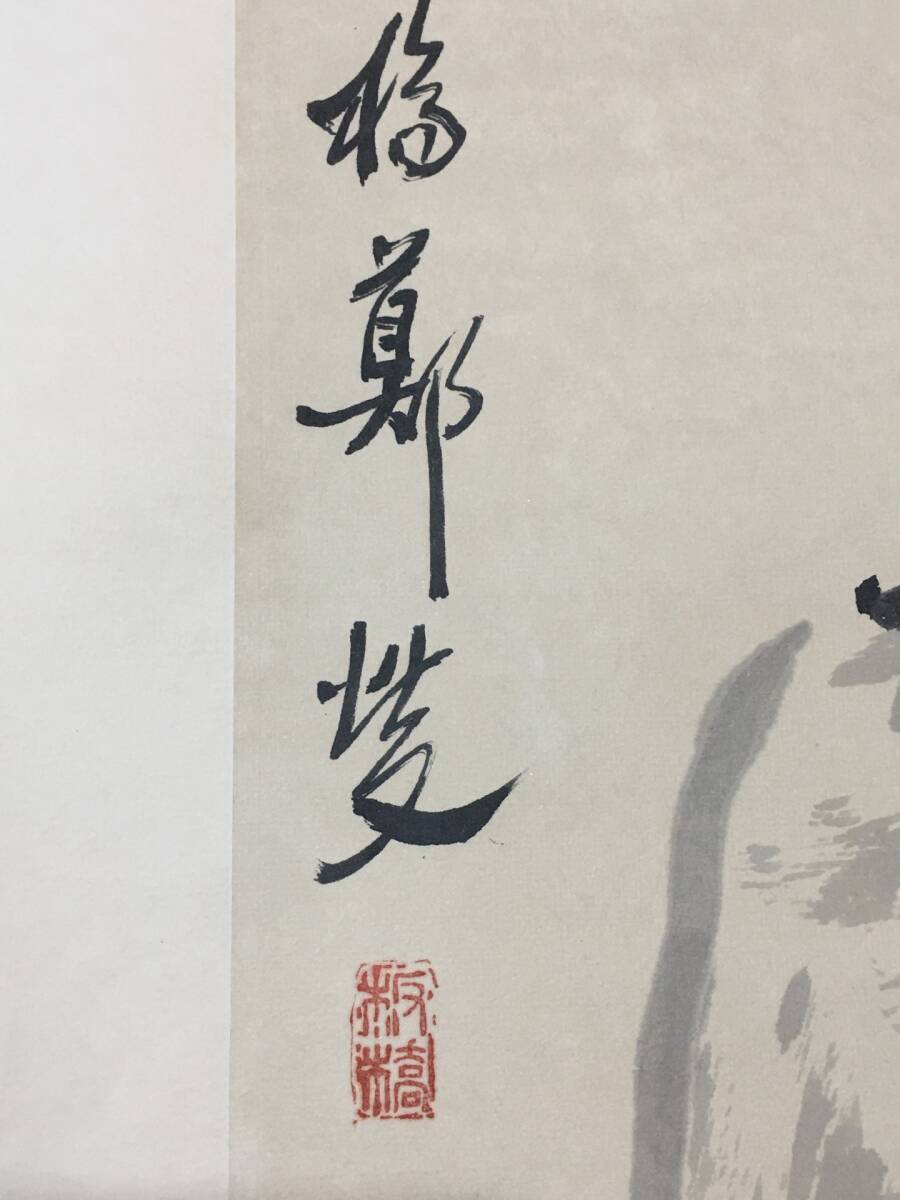 橋鄭燮
板橋